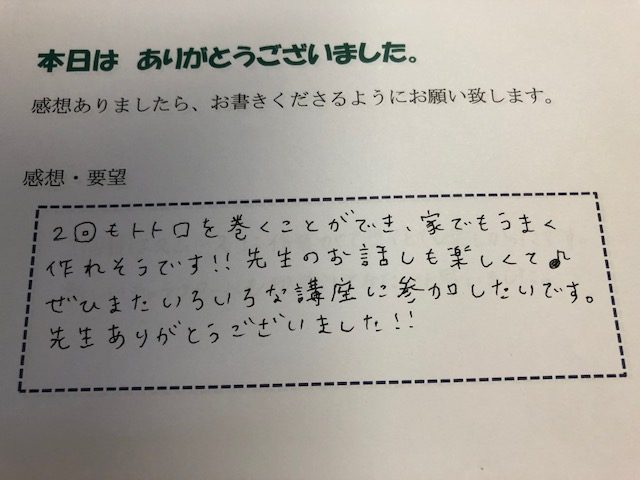 本日は ありがとうございました。
感想ありましたら、お書きくださるようにお願い致します。
感想・要望
2回もトトロを巻くことができ、家でもうまく
作れそうです!! 先生のお話しも楽しくて♪
ぜひまたいろいろな講座に参加したいです。
先生ありがとうございました!!